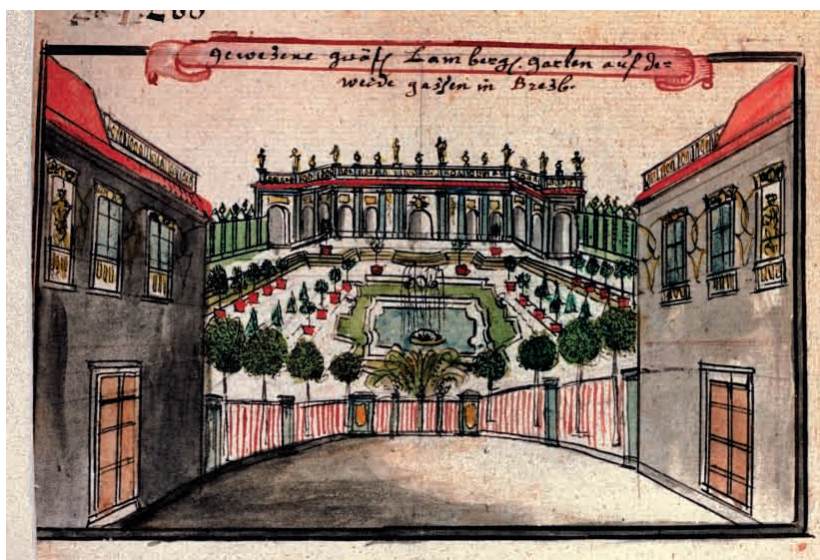 gewesene gräfl Lambergl. garten auf der
weide gassen in Bresl.